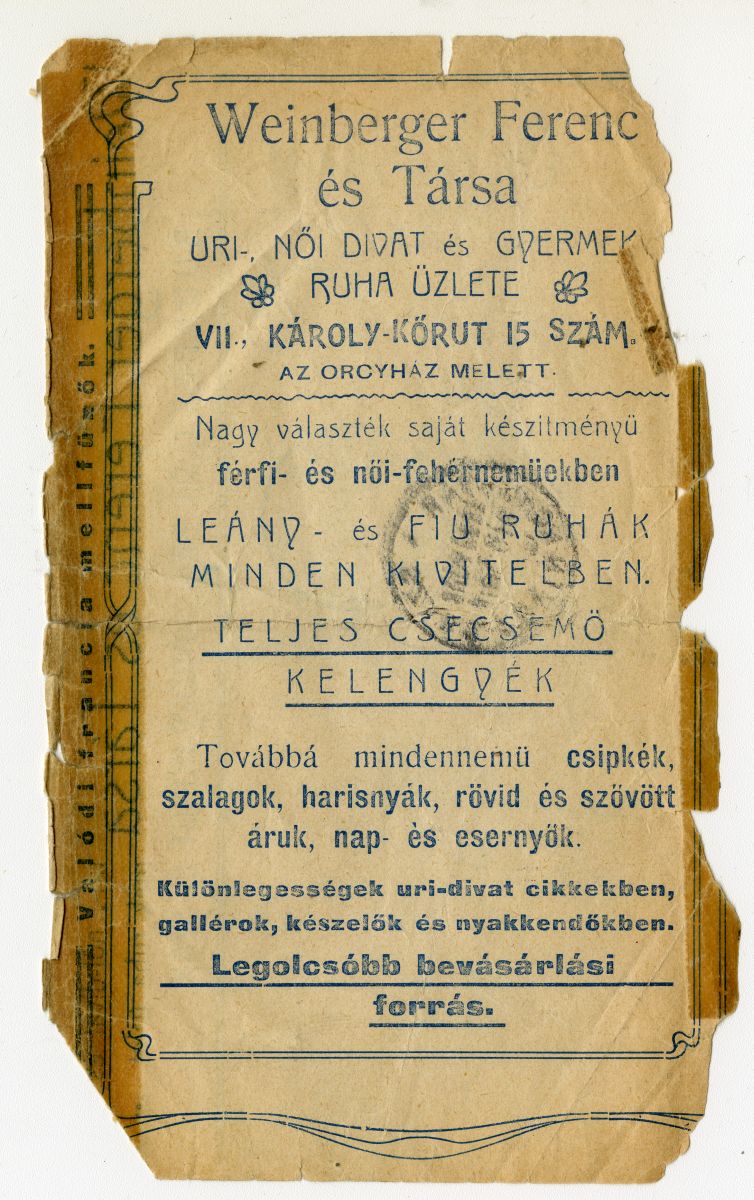 Weinberger Ferenc
és Társa
URI-, NŐI DIVAT és GYERMEK
RUHA ÜZLETE
VII., KÁROLY-KŐRUT 15 SZÁM.
AZ ORCYHÁZ MELETT.
Nagy választék saját készitményü
férfi- és női-fehérnemüekben
LEÁNY- és FIU RUHÁK
MINDEN KIVITELBEN.
TELJES CSECSEMŐ
KELENGYÉK
Továbbá mindennemü csipkék,
szalagok, harisnyák, rövid és szövött
áruk, nap- ès esernyők.
Különlegességek uri-divat cikkekben,
gallérok, készelők és nyakkendőkben.
Legolcsóbb bevásárlási
forrás.
Valódi francia mellfűzők.